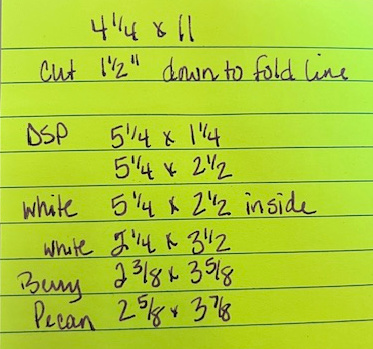 4 1/4 x 11
Cut 1 1/2" down to fold line
DSP 5 1/4 x 1 1/4
5 1/4 x 2 1/2
white 5 1/4 x 2 1/2 inside
white 2 1/4 x 3 1/2
Berry 2 3/8 x 3 5/8
Pecan 2 5/8 x 3 7/8